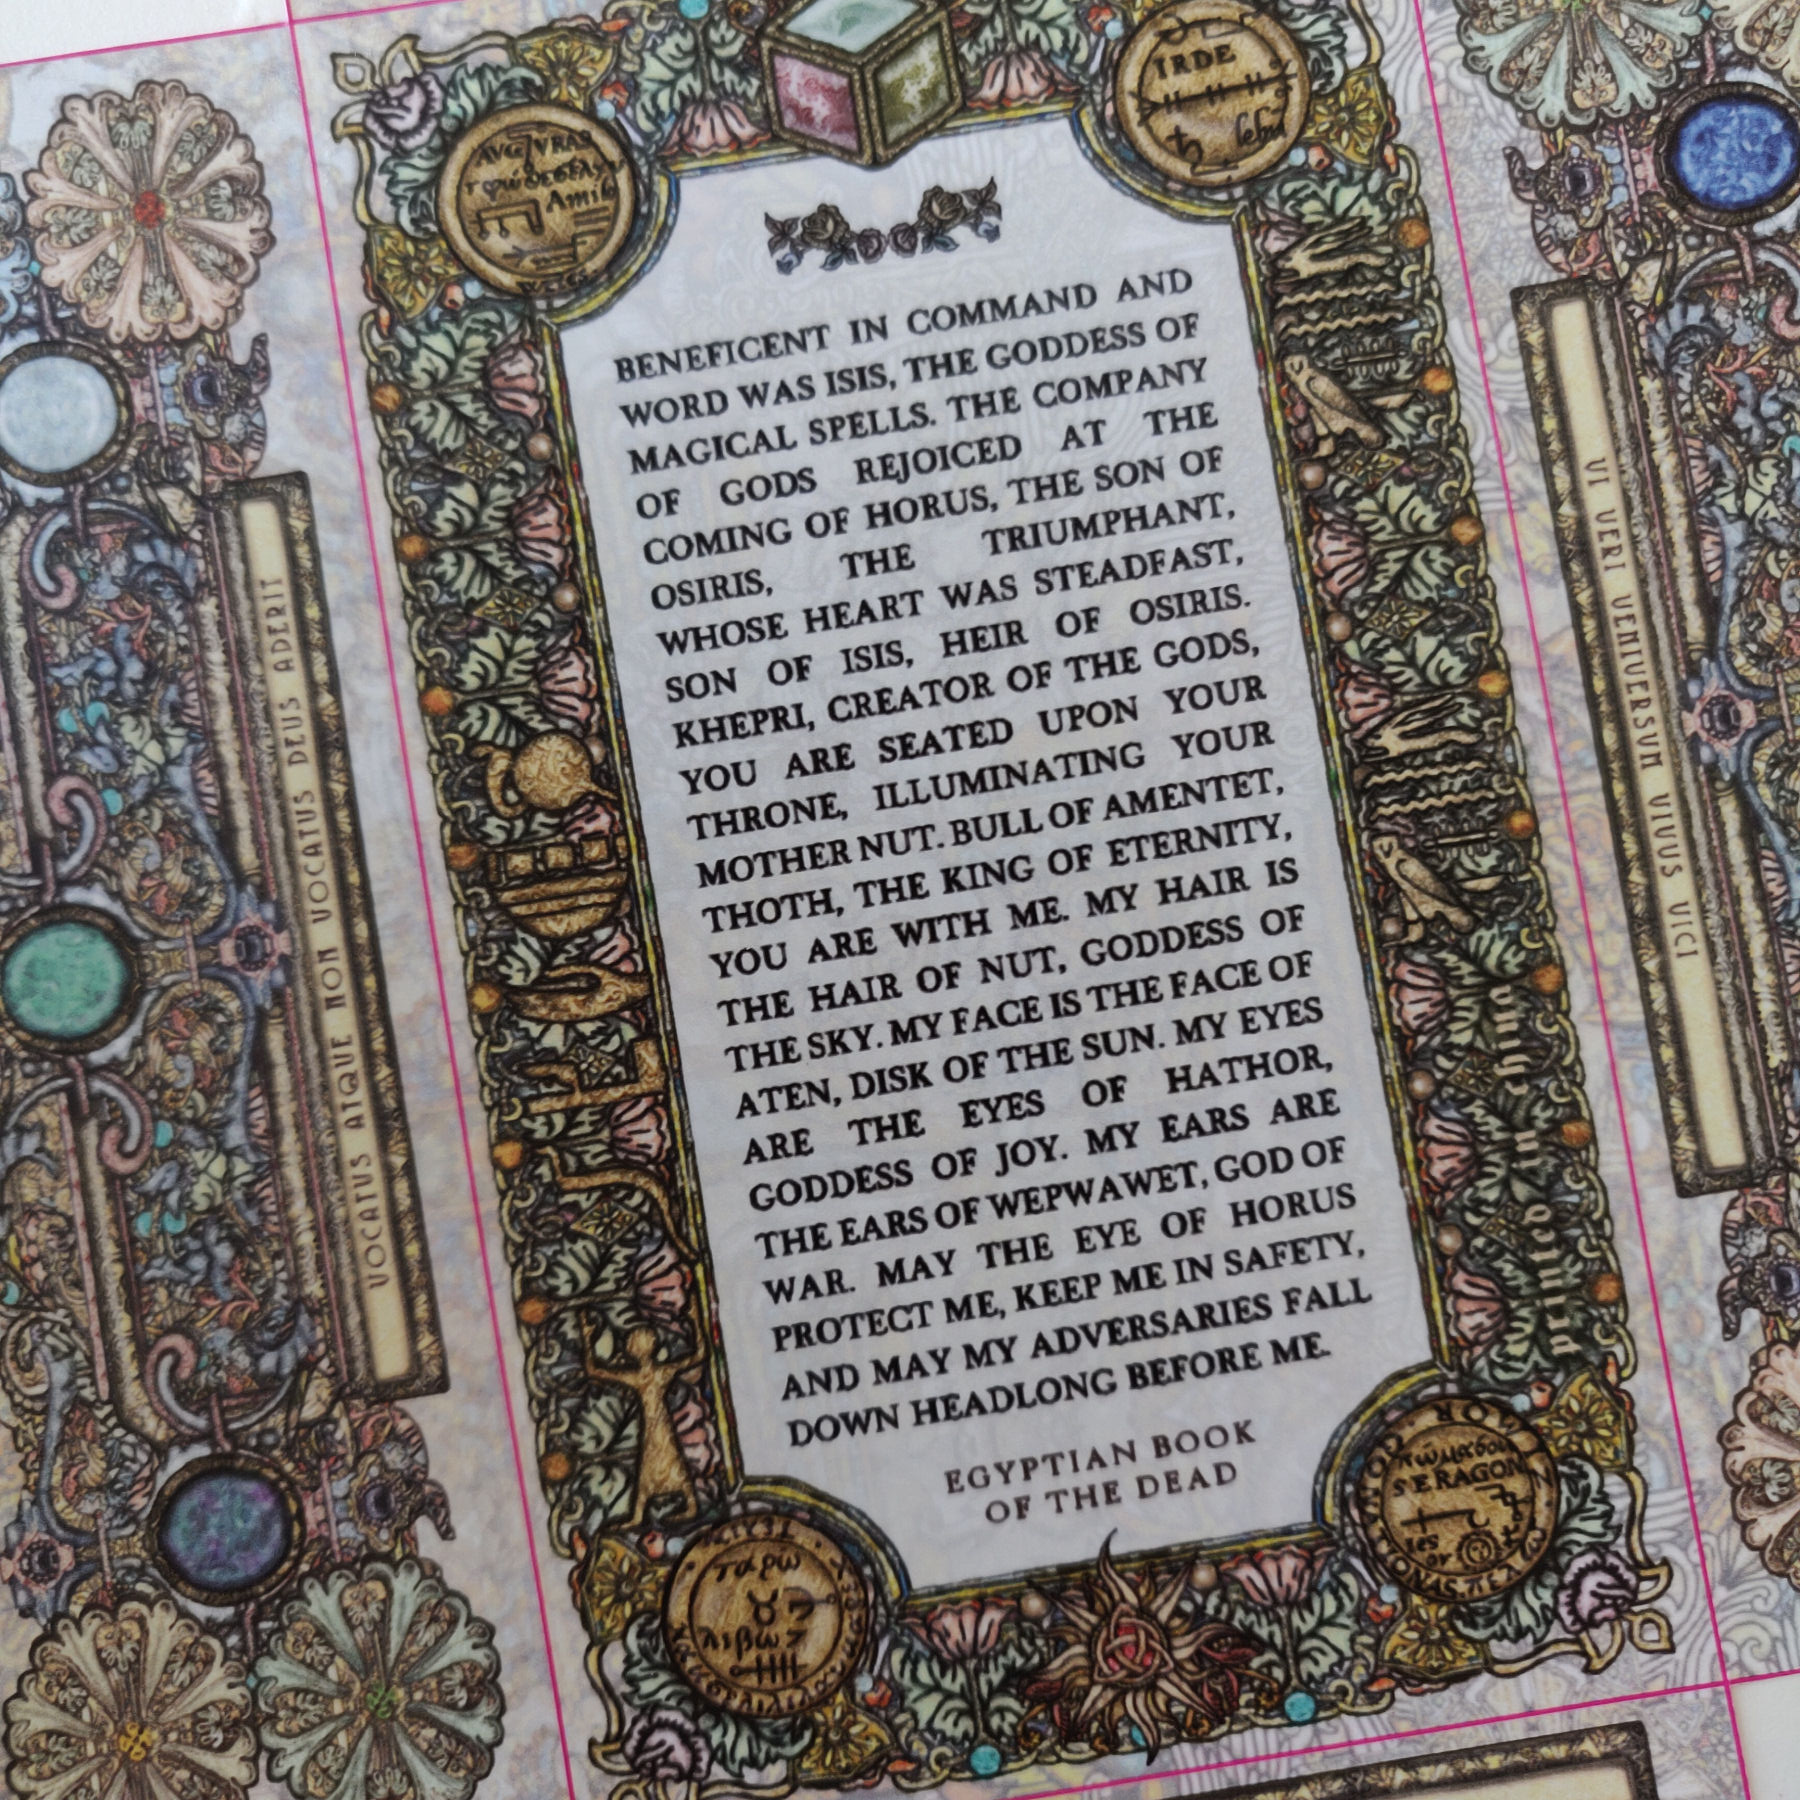 BENEFICENT IN COMMAND AND
WORD WAS ISIS, THE GODDESS OF
MAGICAL SPELLS. THE COMPANY
OF GODS REJOICED AT THE
COMING OF HORUS, THE SON OF
OSIRIS, THE TRIUMPHANT,
WHOSE HEART WAS STEADFAST,
SON OF ISIS, HEIR OF OSIRIS.
KHEPRI, CREATOR OF THE GODS,
YOU ARE SEATED UPON YOUR
THRONE, ILLUMINATING YOUR
MOTHER NUT. BULL OF AMENTET,
THOTH, THE KING OF ETERNITY,
YOU ARE WITH ME. MY HAIR IS
THE HAIR OF NUT, GODDESS OF
THE SKY. MY FACE IS THE FACE OF
ATEN, DISK OF THE SUN. MY EYES
ARE THE EYES OF HATHOR,
GODDESS OF JOY. MY EARS ARE
THE EARS OF WEPWAWET, GOD OF
WAR. MAY THE EYE OF HORUS
PROTECT ME, KEEP ME IN SAFETY,
AND MAY MY ADVERSARIES FALL
DOWN HEADLONG BEFORE ME.
EGYPTIAN BOOK
OF THE DEAD
VOCATUS ATQUE NON VOCATUS DEUS ADERIT
VI VERI VENIVERSVM VIVUS VICI
IRDE
Amilo
ταρω
λιβω
SERAGON